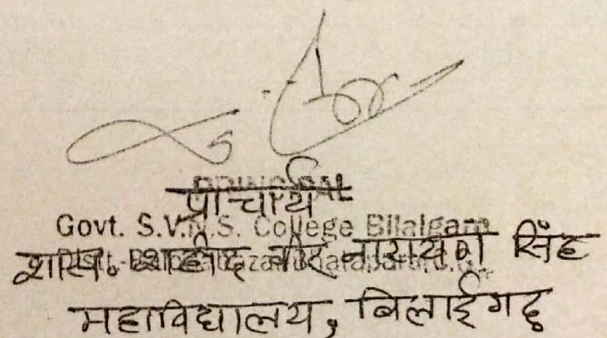 PRINCIPAL
प्राचार्य
Govt. S.V.N.S. College Bilaigarh
शास. शहीद वीर नारायण सिंह
महाविद्यालय, बिलाईगढ़